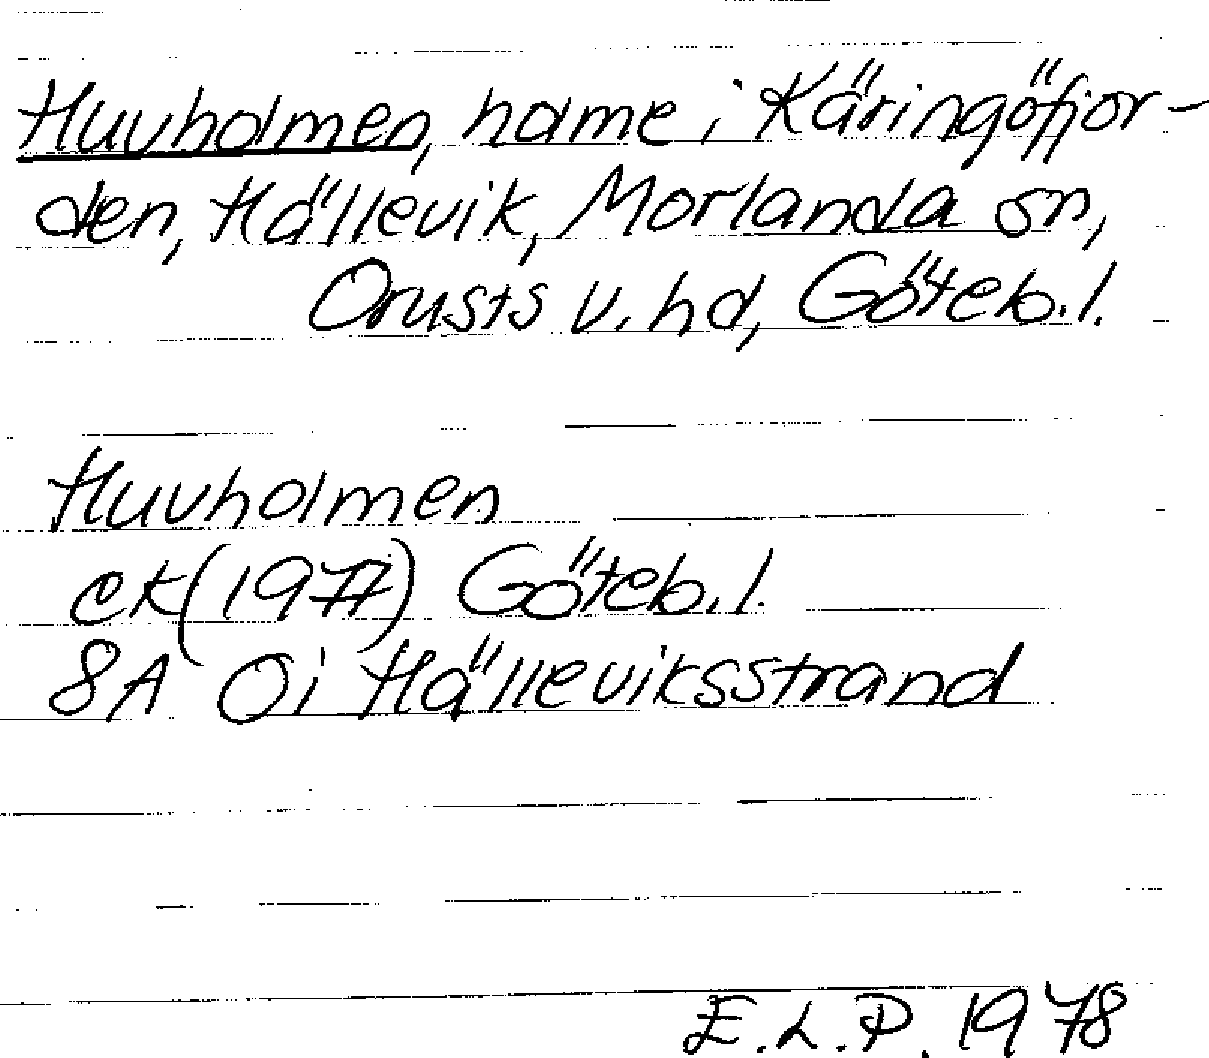 Huvholmen, holme i Käringöfjor-
den, Hällevik, Morlanda sn,
Orusts v. hd, Göteb. l.
Huvholmen
ek (1977) Göteb. l.
8A 0i Hälleviksstrand
E.L.P. 1978